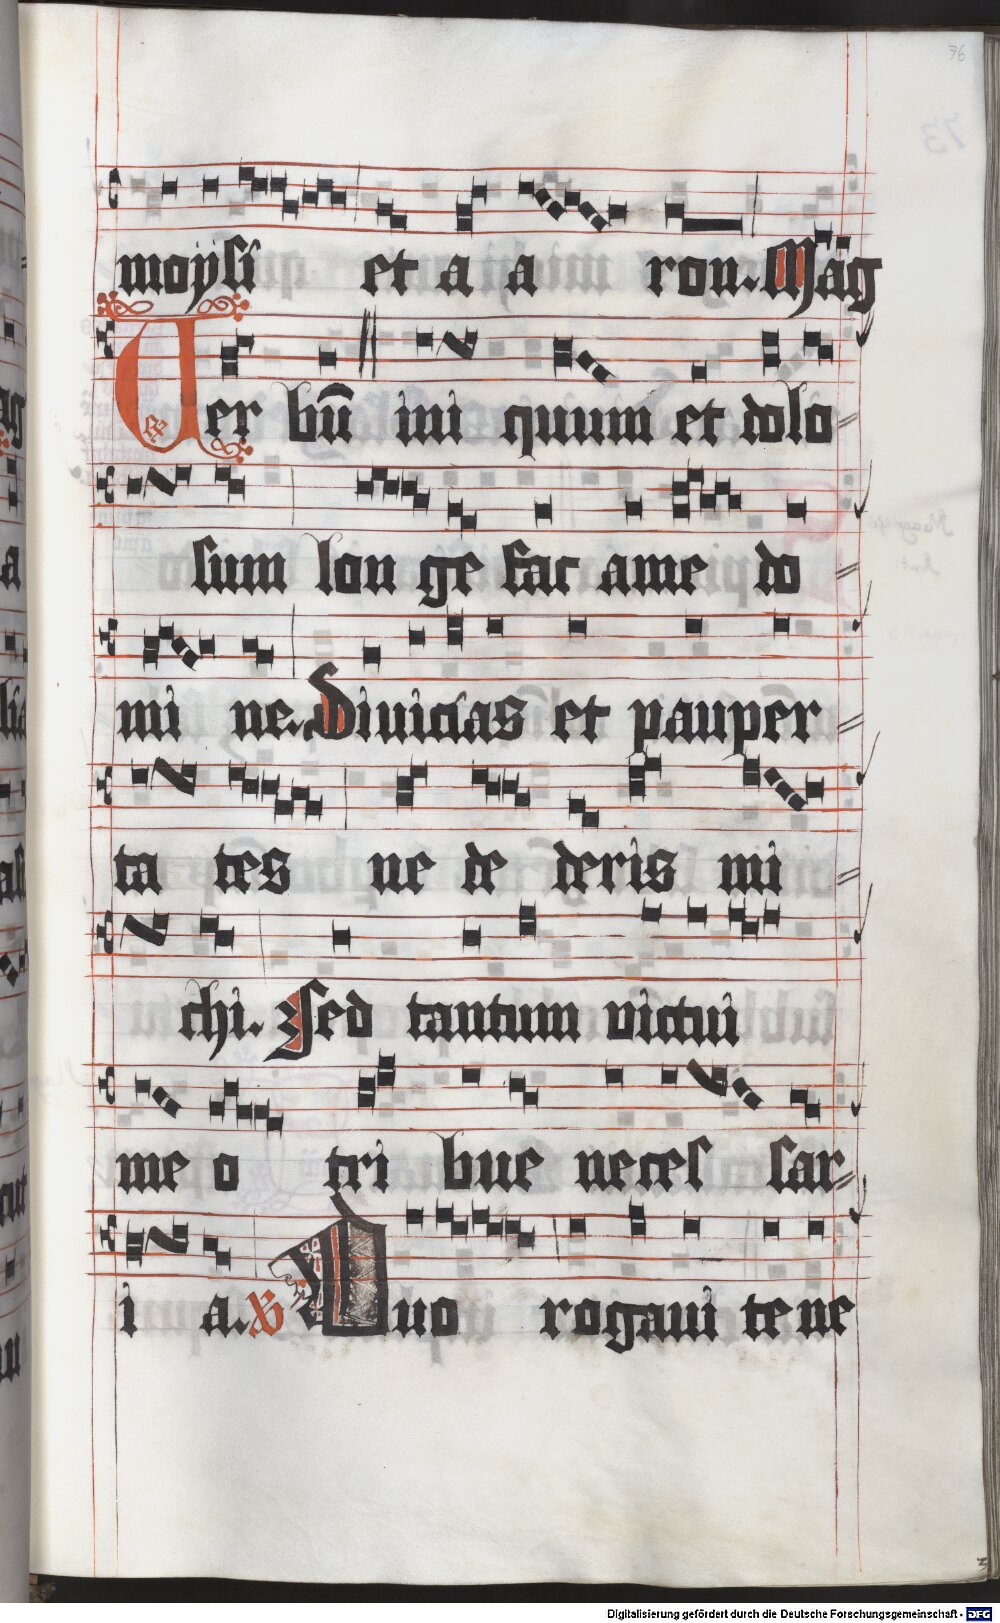 76
moysi et a a ron. Mag
Uer bū ini quum et dolo
sum lon ge fac a me do
mi ne. Diuicias et pauper
ta tes ne de deris mi
chi. Sed tantum victui
me o tri bue neces sar
i a. Duo rogaui te ne
Digitalisierung gefördert durch die Deutsche Forschungsgemeinschaft - DFG